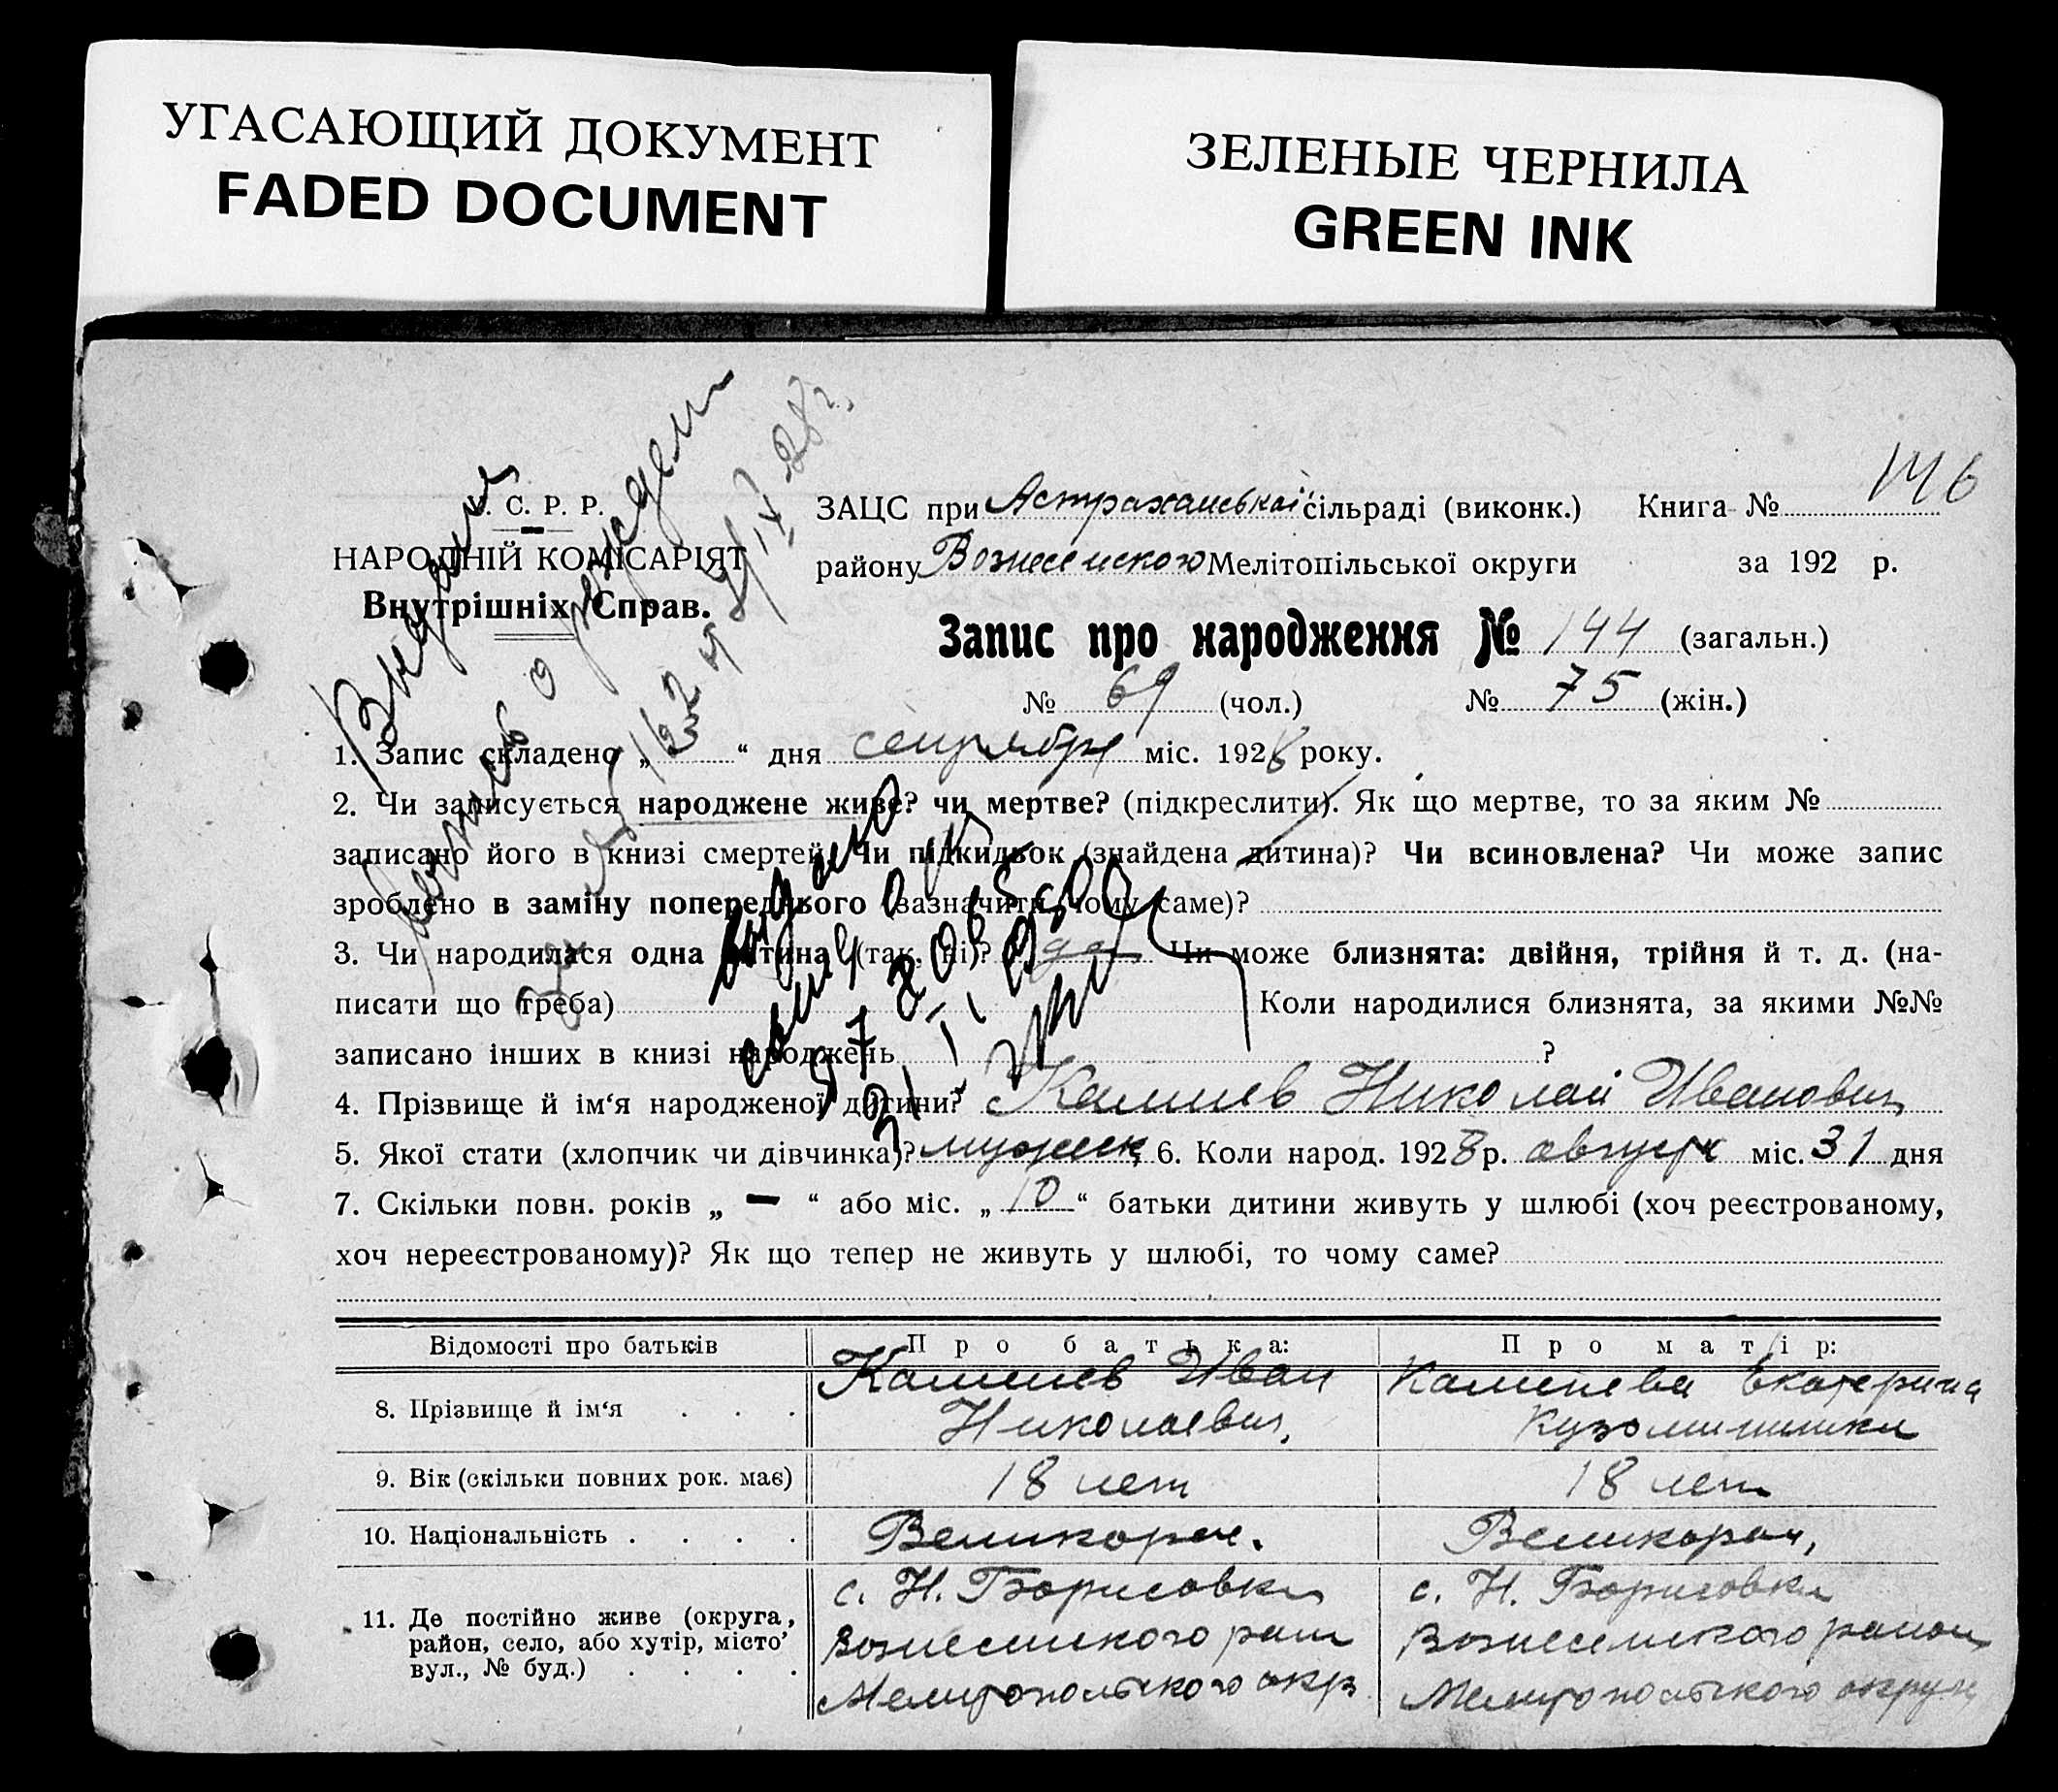 УГАСАЮЩИЙ ДОКУМЕНТ
FADED DOCUMENT
ЗЕЛЕНЫЕ ЧЕРНИЛА
GREEN INK
146
У. С. Р. Р.
НАРОДНІЙ КОМІСАРІЯТ
Внутрішніх Справ.
ЗАЦС при Астраханської сільраді (виконк.) Книга №
району Вознесенского Мелітопільської округи за 192 р.
Запис про народження № 144 (загальн.)
№ 69 (чол.) № 75 (жін.)
1. Запис складено „ “ дня сентября міс. 1928 року.
2. Чи записується народжене живе? чи мертве? (підкреслити). Як що мертве, то за яким №
записано його в книзі смертей. Чи підкидьок (знайдена дитина)? Чи всиновлена? Чи може запис
зроблено в заміну попереднього (зазначити чому саме)?
3. Чи народилася одна дитина (так, ні)? да Чи може близнята: двійня, трійня й т. д. (на-
писати що треба) Коли народилися близнята, за якими №№
записано інших в книзі народжень ?
4. Прізвище й ім‘я народженої дитини? Николай Иванович
5. Якої стати (хлопчик чи дівчинка)? мужск 6. Коли народ. 1928 р. август міс. 31 дня
7. Скільки повн. років „ — “ або міс. „ 10 “ батьки дитини живуть у шлюбі (хоч реєстрованому,
хоч нереєстрованому)? Як що тепер не живуть у шлюбі, то чому саме?
Відомості про батьків Про батька: Про матір:
8. Прізвище й ім‘я . . . Иван Николаевич Екатерина
9. Вік (скільки повних рок. має) 18 лет 18 лет
10. Національність . . . . Великорос. Великорос,
11. Де постійно живе (округа, район, село, або хутір, місто, вул., № буд.) . . . .
с. Н. Борисовки с. Н. Борисовки
Вознесенского Вознесенского района
Мелитопольского окр Мелитопольского округа
Выдана
о рожден
4/IX 28 г.